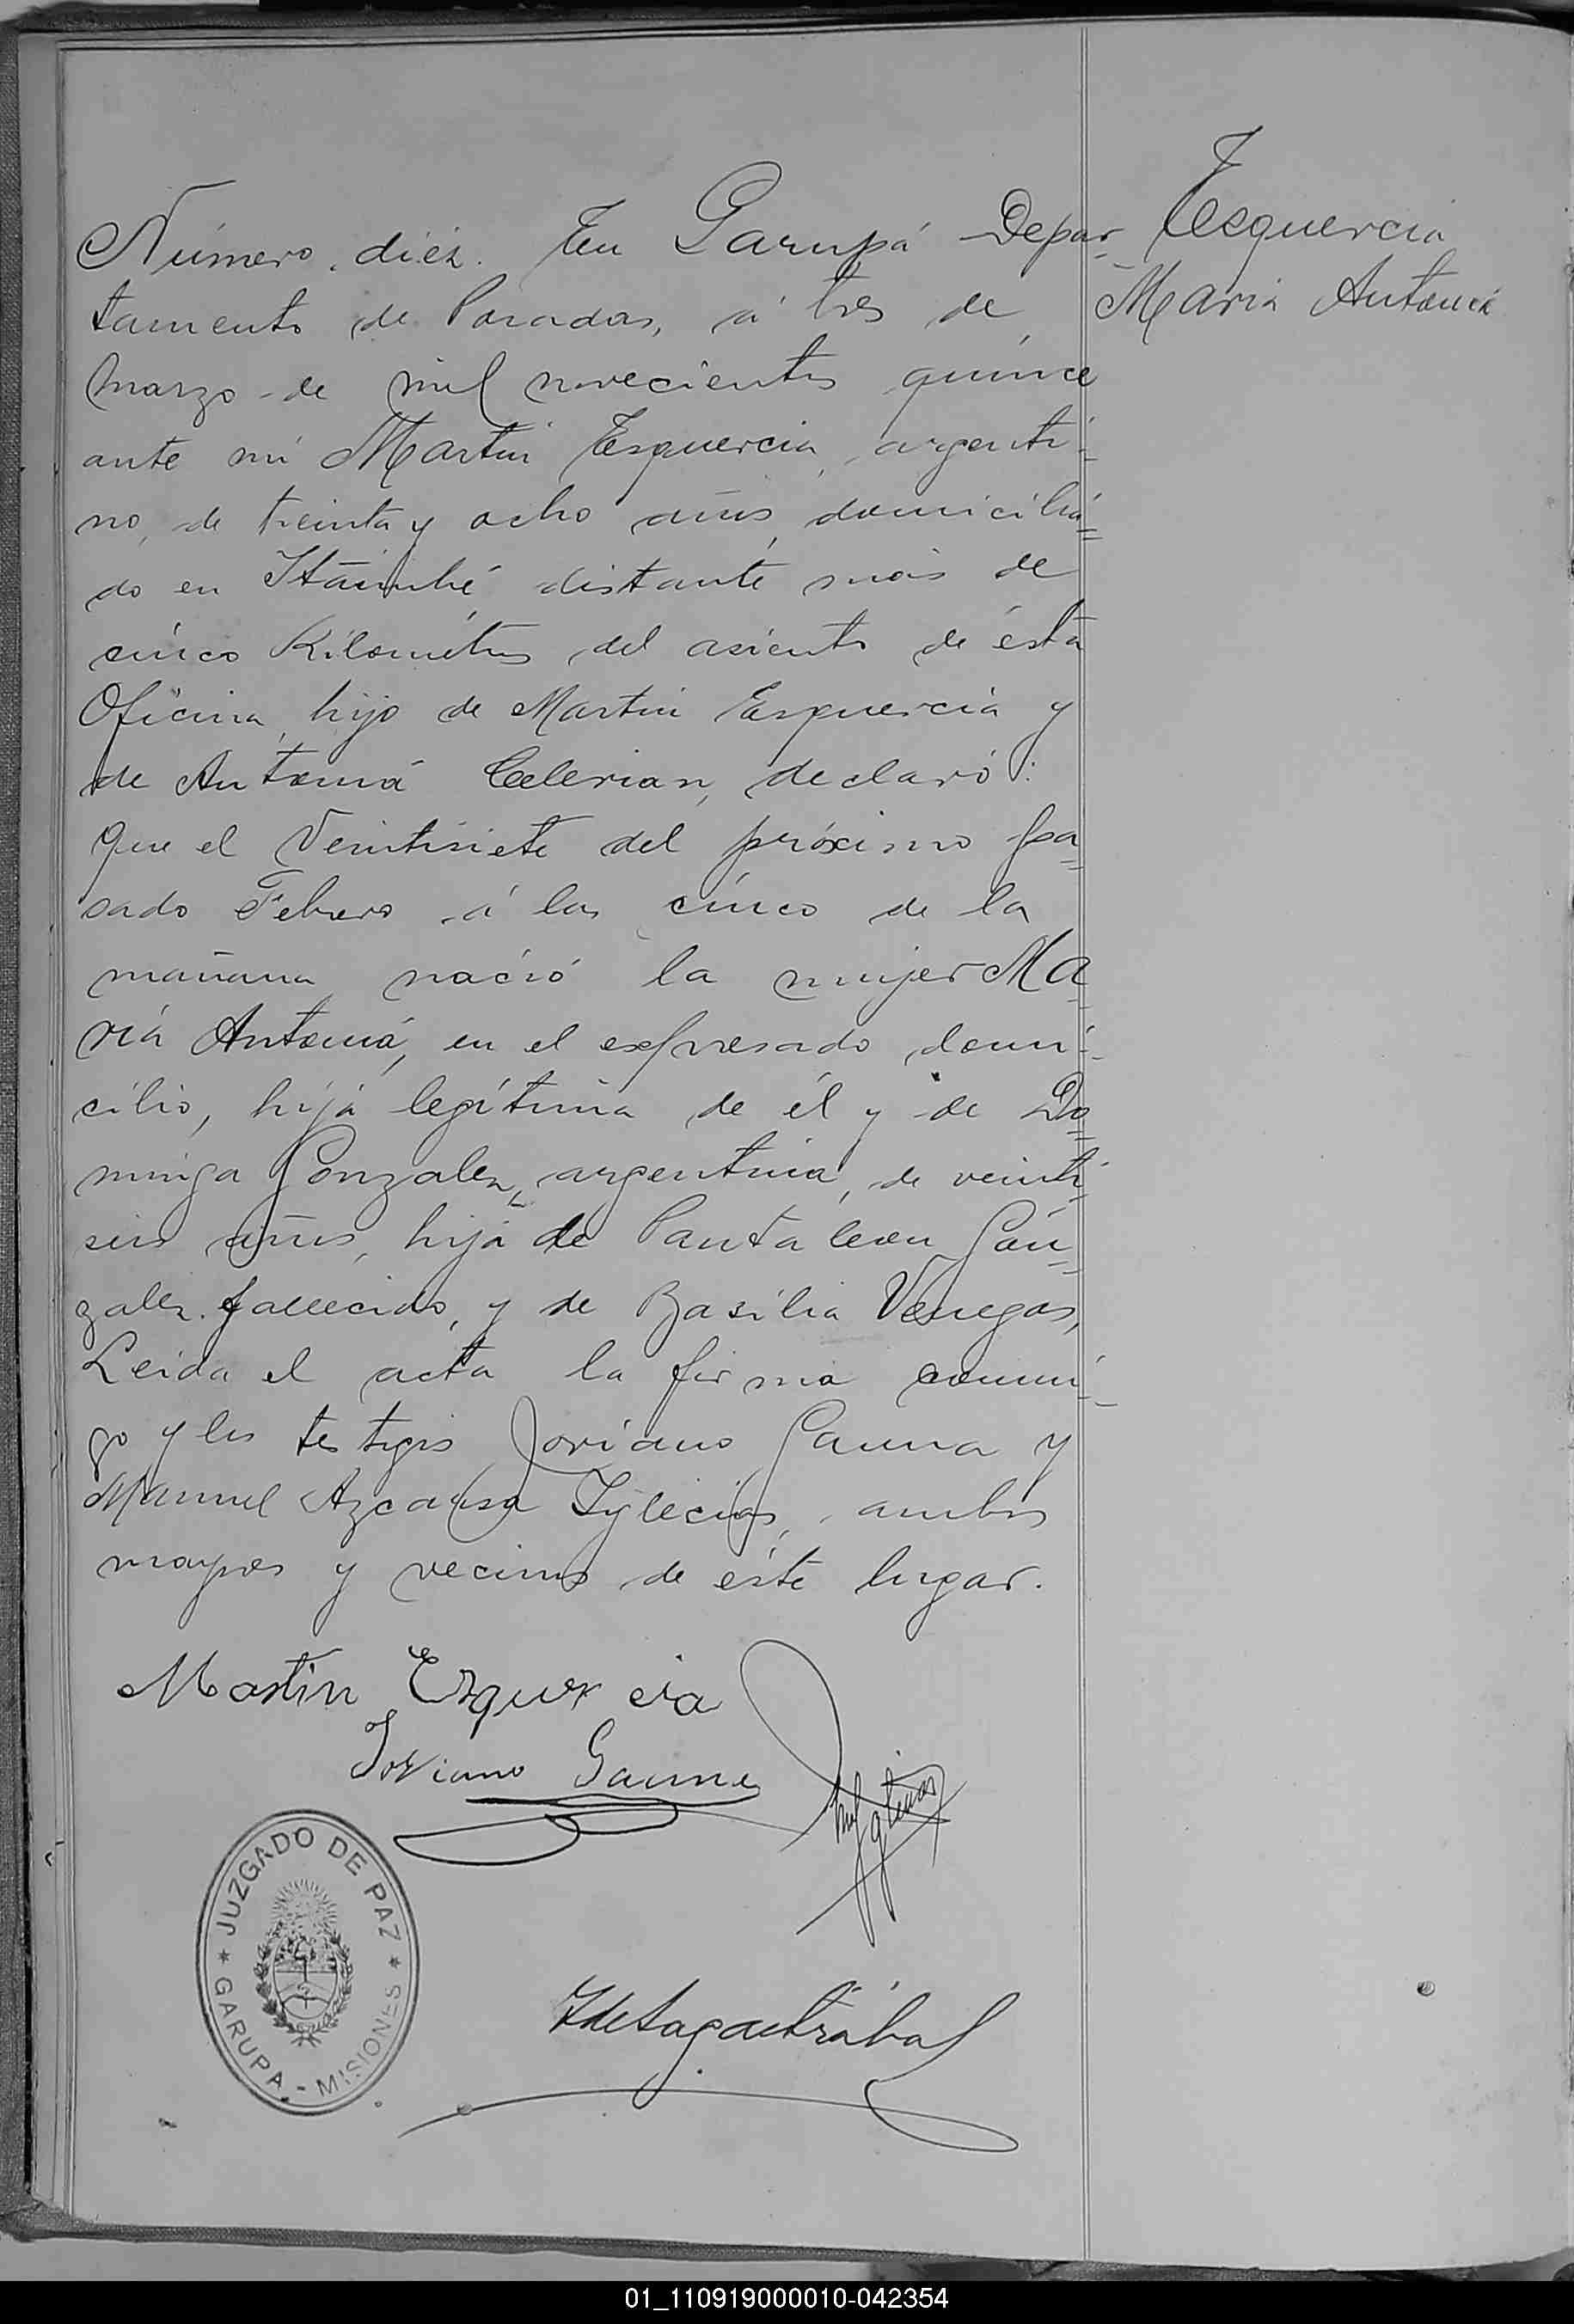 Número diéz. En Garupá Depar-
tamento de Posadas, á tres de
marzo de mil novecientos quince
ante mi Martin Esquercia, argenti-
no, de treinta y ocho años, domicilia=
do en Itaimbé distante más de
cinco Kilometros del asiento de ésta
Oficina, hijo de Martin Esquercia y
de Antonia Celerian, declaró:
Que el Veintisiete del próximo pa=
sado Febrero á las cinco de la
mañana nació la mujer Ma=
ria Antonia, en el expresado domi-
cilio, hija legítima de él y de Do=
minga Gonzalez, argentina, de veinti
seis años, hija de Pantaleon Gon=
zalez fallecido, y de Basilia Venegas,
Leida el acta la firma conmi-
go y los testigos Joviano Gauna y
Manuel Iglecias, ambos
mayores y vecinos de éste lugar.
Esquercia
Maria Antonia
Martin Ezquercia
Joviano Gauna
Iglesias
JUZGADO DE PAZ
GARUPA - MISIONES
01_110919000010-042354